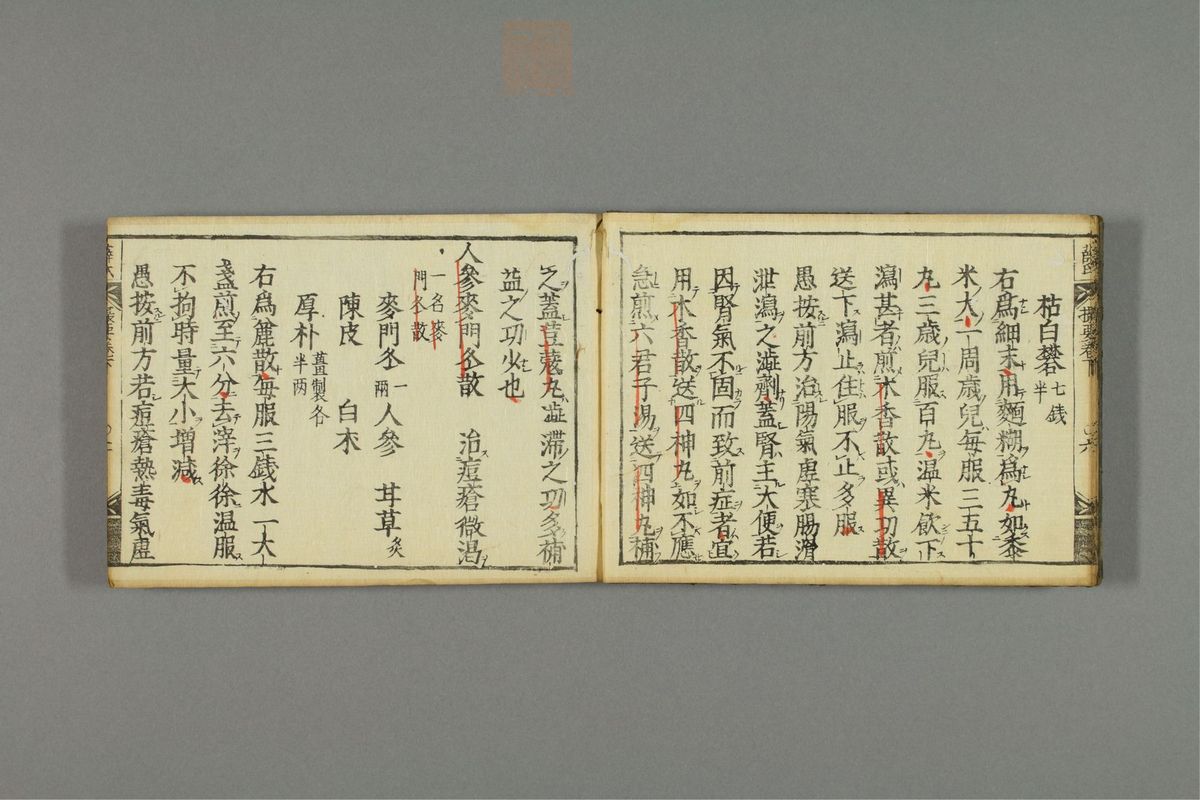 枯白礬七錢半
右爲細末用麵糊爲丸如黍
米大一周歲兒每服三五十
丸三歲兒服百丸溫米飲下
瀉甚者煎木香散或異功散
送下瀉止住服不止多服
愚按前方治陽氣虛寒腸滑
泄瀉之澁劑蓋腎主大便若
因腎氣不固而致前症者宜
用木香散送四神丸如不應
急煎六君子湯送四神丸補
之蓋荳蔻丸澁滯之功多補
益之功少也
人參麥門冬散 治痘瘡微渴
一名麥門冬散
麥門冬一兩 人參 甘草炙
陳皮 白朮
厚朴薑製各半兩
右爲麄散每服三錢水一大
盞煎至六分去滓徐徐温服
不拘時量大小增減
愚按前方若痘瘡熱毒氣虛